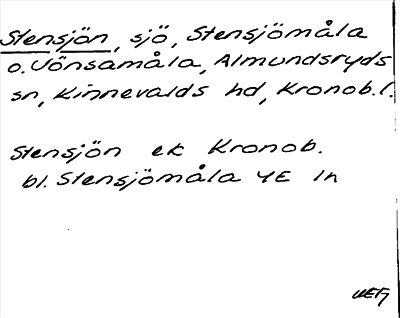 Stensjön, sjö, Stensjömåla
o. Jönsamåla, Almundsryds
sn, Kinnevalds hd, Kronob. l.
Stensjön ek Kronob.
bl. Stensjömåla 4E ln